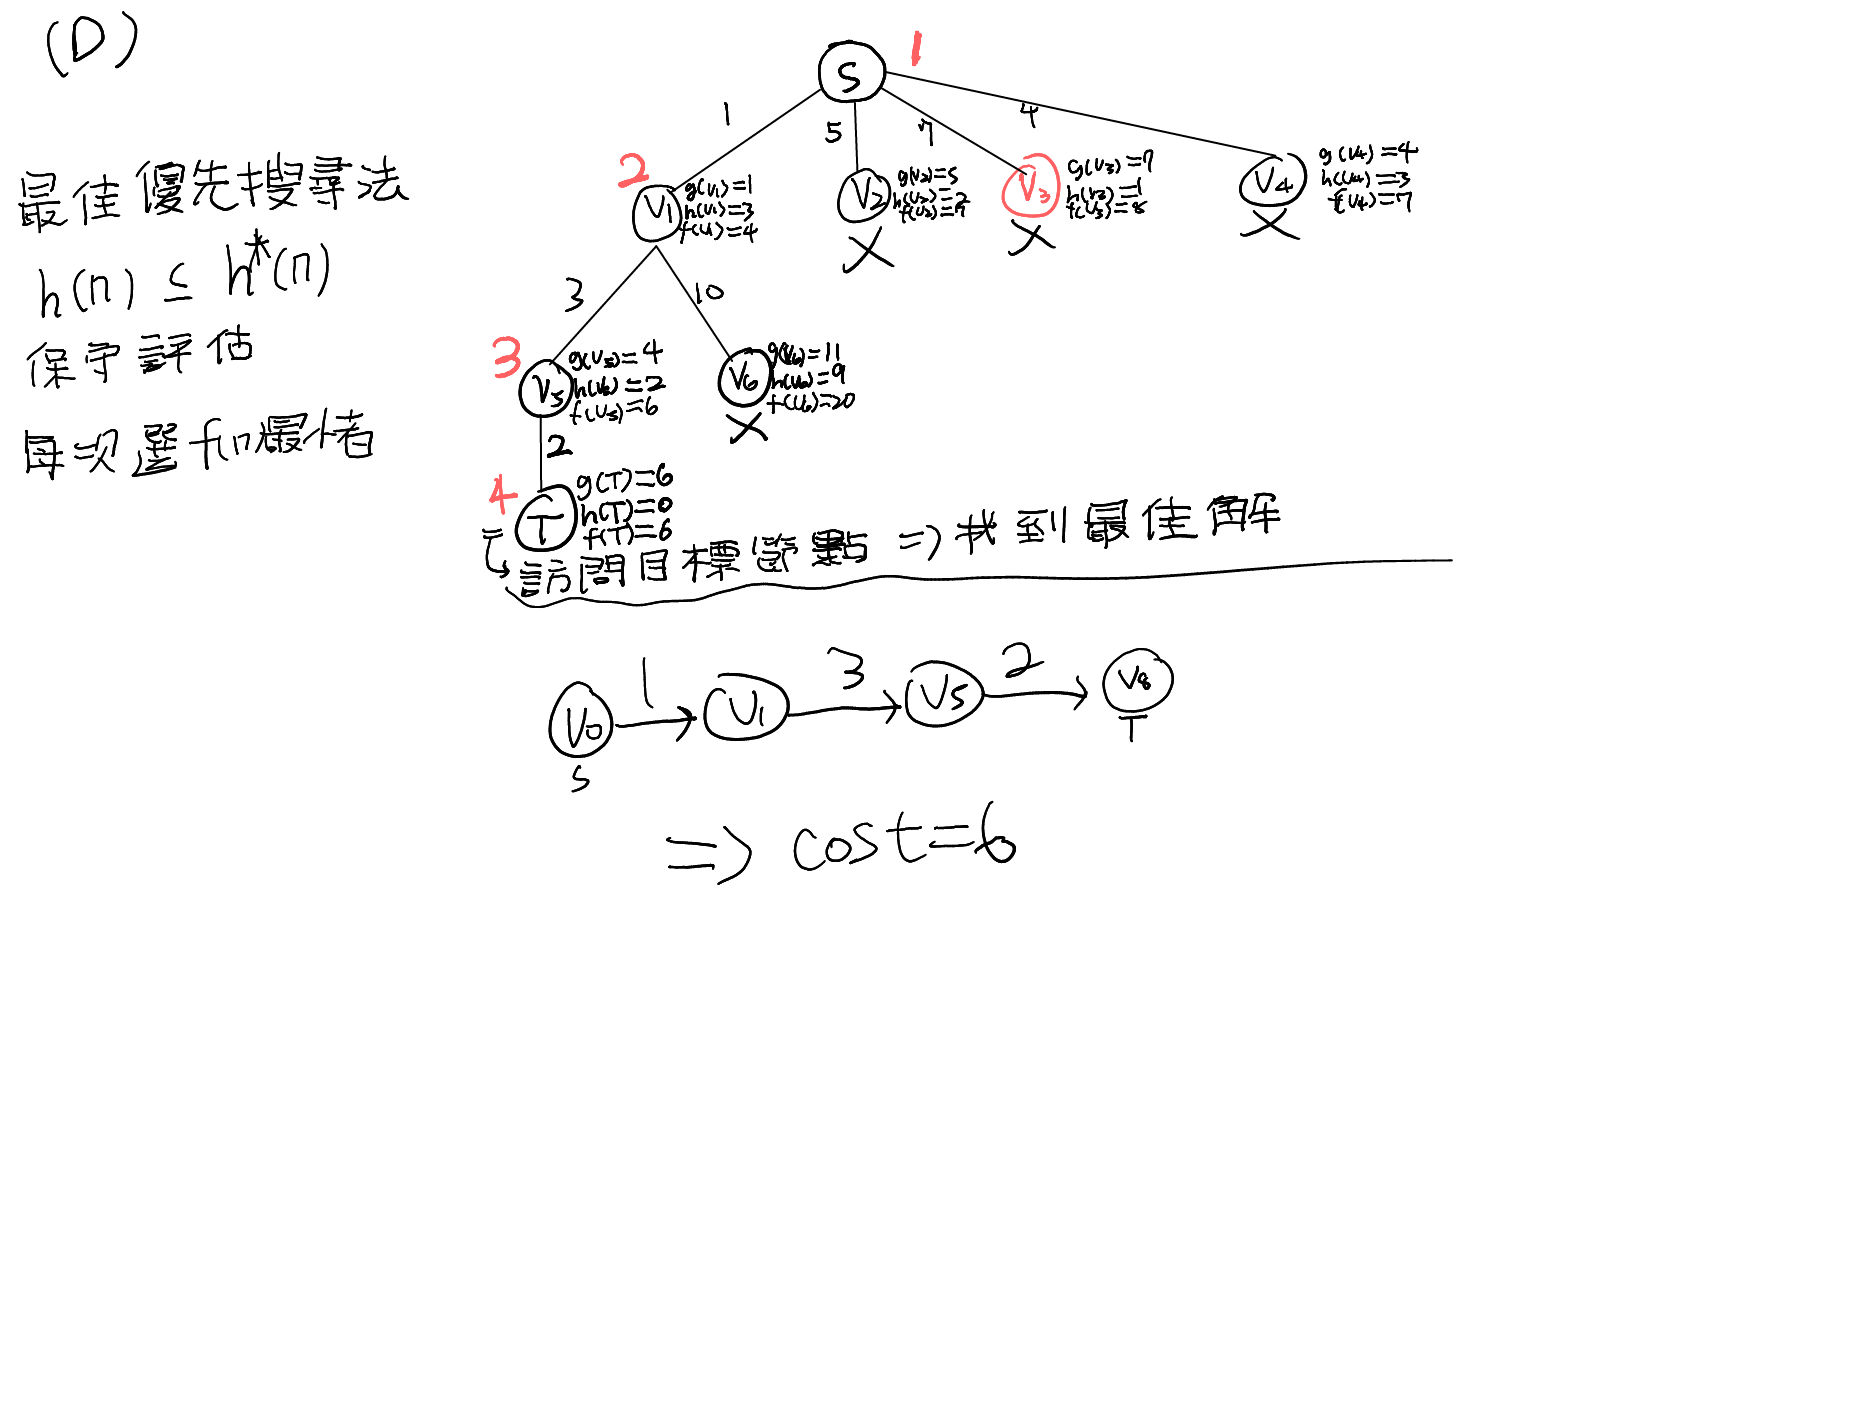 (D)
最佳優先搜尋法
h(n) ≤ h*(n)
保守評估
每次選f(n)最小者
S
1
1
5
7
4
2
V1
g(V1)=1
h(V1)=3
f(V1)=4
V2
g(V2)=5
h(V2)=2
f(V2)=7
X
V3
g(V3)=7
h(V3)=1
f(V3)=8
X
V4
g(V4)=4
h(V4)=3
f(V4)=7
X
3
10
3
V5
g(V5)=4
h(V5)=2
f(V5)=6
V6
g(V6)=11
h(V6)=9
f(V6)=20
X
2
4
T
g(T)=6
h(T)=0
f(T)=6
訪問目標節點 => 找到最佳解
V0 1 V1 3 V5 2 V8
S T
=> cost=6